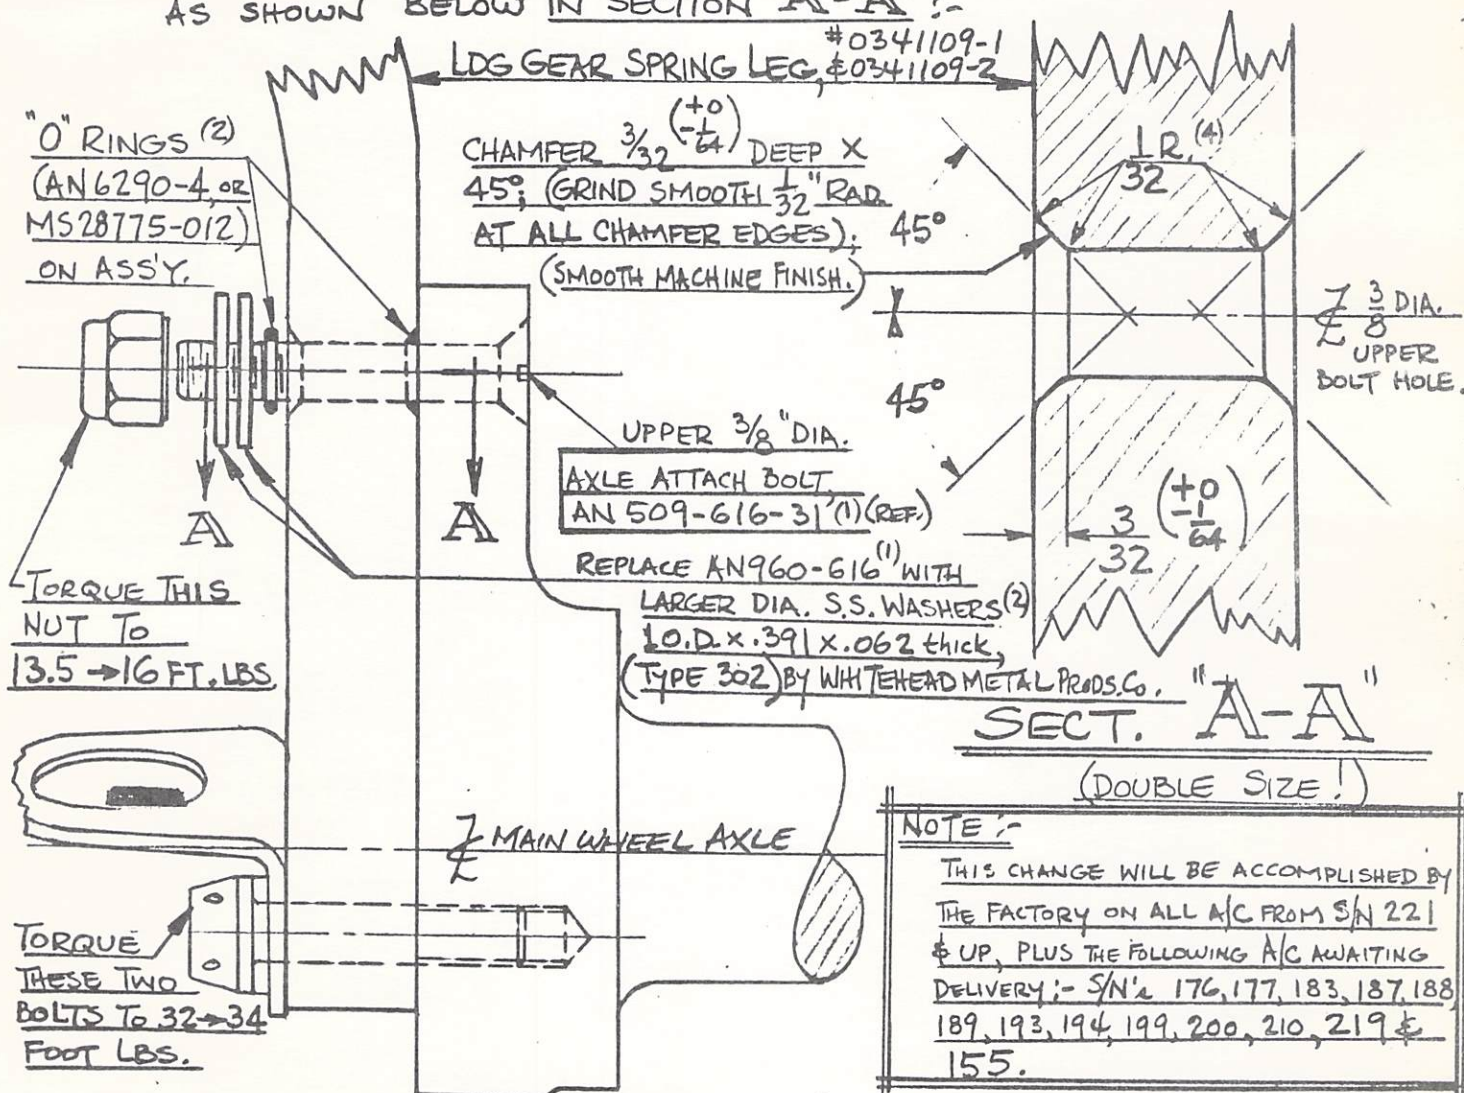 AS SHOWN BELOW IN SECTION "A-A" :-
LDG GEAR SPRING LEG, #0341109-1
& 0341109-2
"O" RINGS (2)
(AN6290-4, OR
MS28775-012)
ON ASS'Y.
CHAMFER 3/32 (+0 -1/64) DEEP X
45°; (GRIND SMOOTH 1/32" RAD.
AT ALL CHAMFER EDGES);
(SMOOTH MACHINE FINISH.)
45°
45°
1/32 R. (4)
℄ 3/8 DIA.
UPPER
BOLT HOLE.
3/32 (+0 -1/64)
UPPER 3/8" DIA.
AXLE ATTACH BOLT
AN 509-616-31 (1) (REF.)
A
A
REPLACE AN960-616 (1) WITH
LARGER DIA. S.S. WASHERS (2)
1 O.D. x .391 x .062 thick,
(TYPE 302) BY WHITEHEAD METAL PRODS. CO.
TORQUE THIS
NUT TO
13.5 → 16 FT. LBS.
SECT. "A-A"
(DOUBLE SIZE!)
℄ MAIN WHEEL AXLE
TORQUE
THESE TWO
BOLTS TO 32 → 34
FOOT LBS.
NOTE :-
THIS CHANGE WILL BE ACCOMPLISHED BY
THE FACTORY ON ALL A/C FROM S/N 221
& UP, PLUS THE FOLLOWING A/C AWAITING
DELIVERY :- S/N's 176, 177, 183, 187, 188
189, 193, 194, 199, 200, 210, 219 &
155.